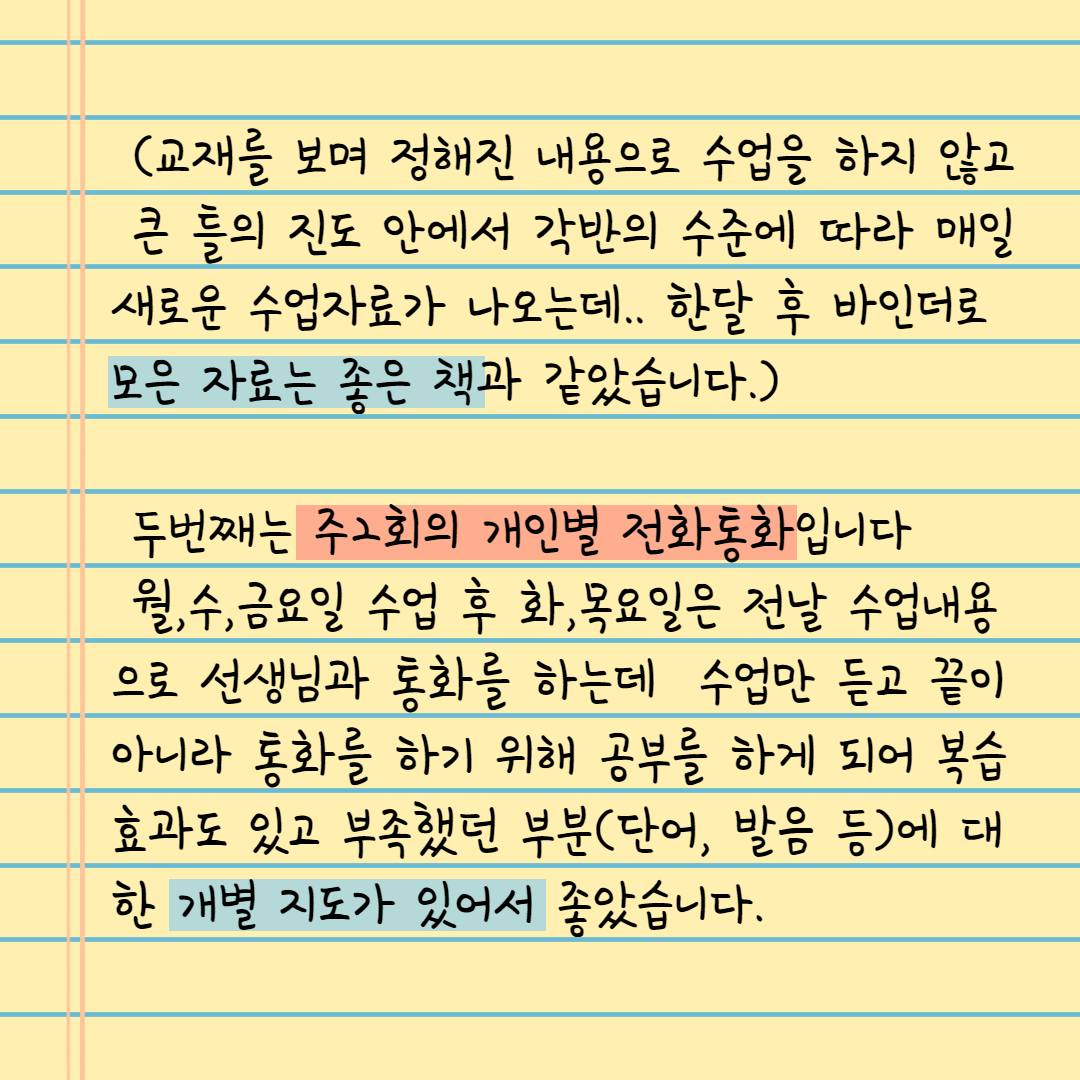 (교재를 보며 정해진 내용으로 수업을 하지 않고
큰 틀의 진도 안에서 각반의 수준에 따라 매일
새로운 수업자료가 나오는데.. 한달 후 바인더로
모은 자료는 좋은 책과 같았습니다.)
두번째는 주2회의 개인별 전화통화입니다
월,수,금요일 수업 후 화,목요일은 전날 수업내용
으로 선생님과 통화를 하는데 수업만 듣고 끝이
아니라 통화를 하기 위해 공부를 하게 되어 복습
효과도 있고 부족했던 부분(단어, 발음 등)에 대
한 개별 지도가 있어서 좋았습니다.